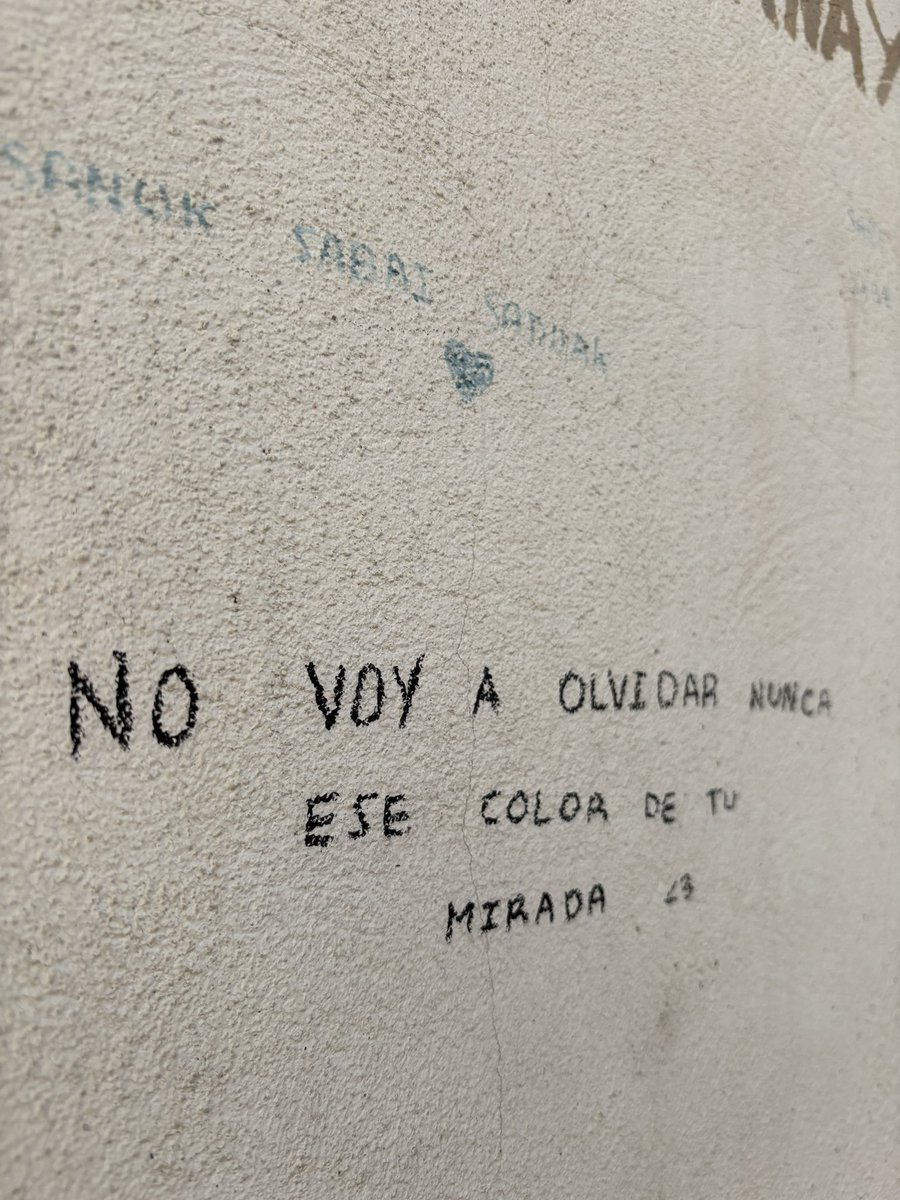 SANUK SABAI SADUAK
NO VOY A OLVIDAR NUNCA
ESE COLOR DE TU
MIRADA <3